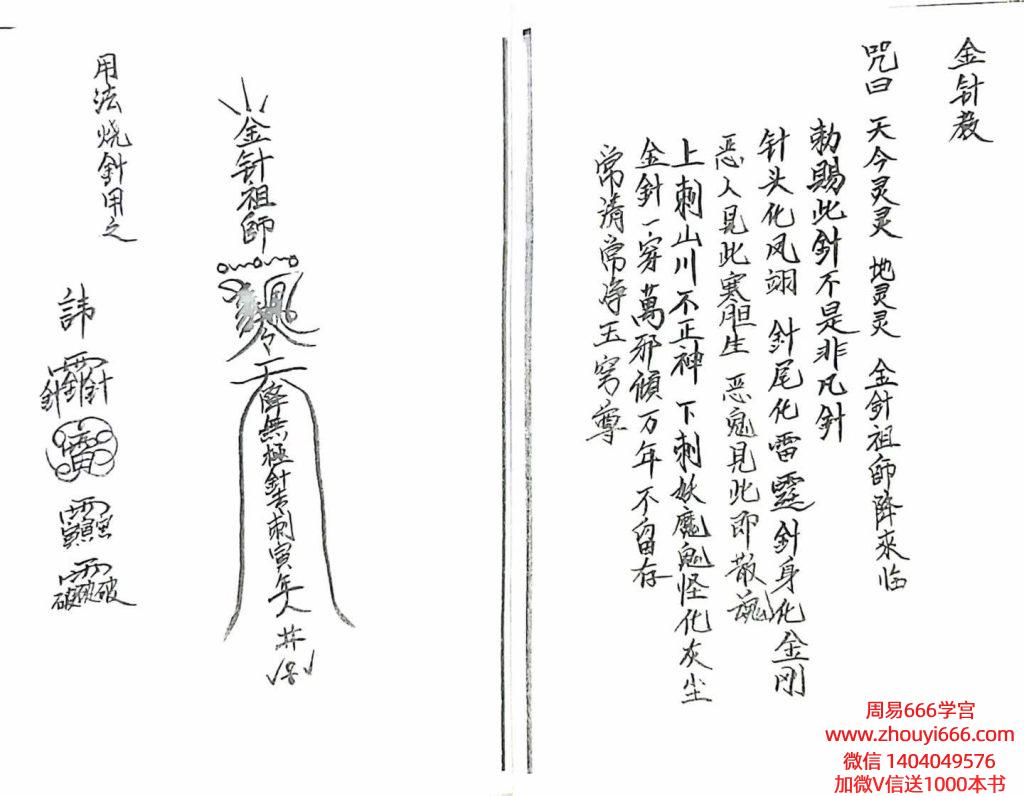 金针教
咒曰 天今灵灵 地灵灵 金針祖師降來临
勅賜此針不是非凡針
针头化凤翊 針尾化雷霆 針身化金刚
恶人見此寒胆生 恶鬼見此即散魂
上刺山川不正神 下刺妖魔鬼怪化灰尘
金針一穿萬邪傾 万年不留存
常清常净玉穹尊
金针祖師
降無極針
刺寅年人
井
用法燒針用之
諱
周易666学宫
www.zhouyi666.com
微信 1404049576
加微V信送1000本书